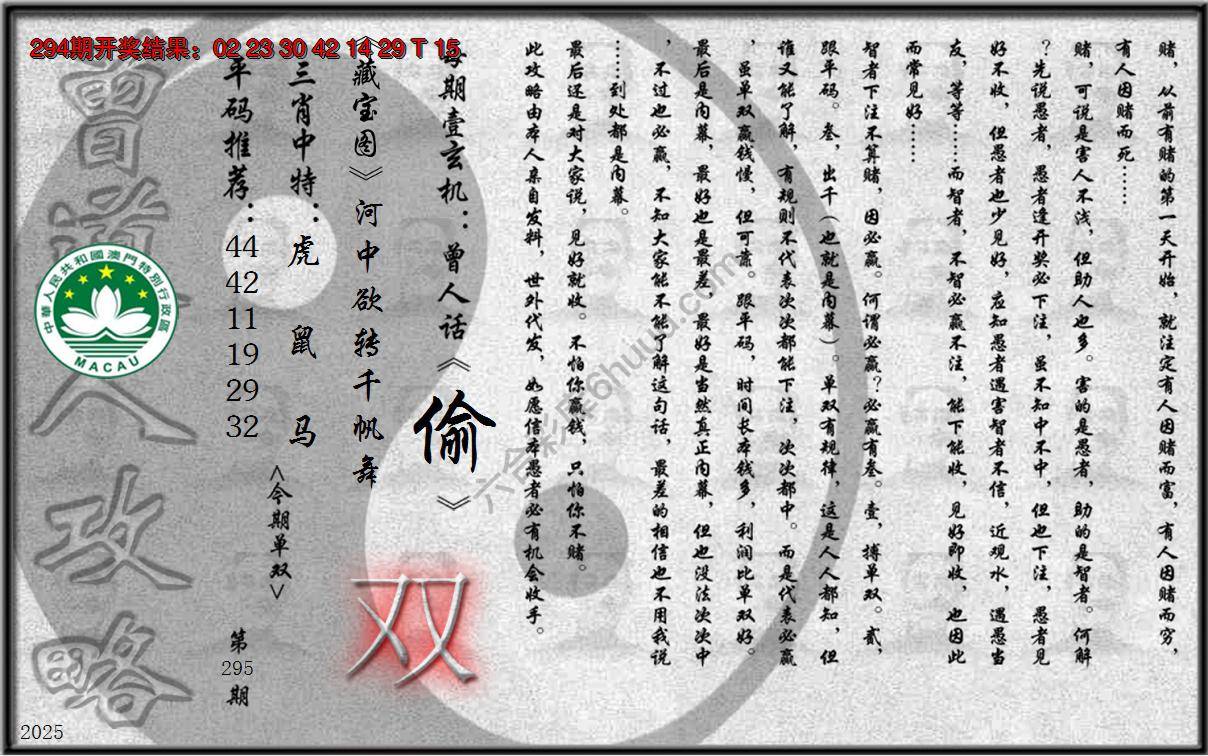 294期开奖结果：02 23 30 42 14 29 T 15
赌，从前有赌的第一天开始，就注定有人因赌而富，有人因赌而穷，
有人因赌而死……
赌，可说是害人不浅，但助人也多。害的是愚者，助的是智者。何解
？先说愚者，愚者逢开奖必下注，虽不知中不中，但也下注，愚者见
好不收，但愚者也少见好，应知愚者遇害智者不信，近观水，遇愚当
友，等等……而智者，不智必赢不注，能下能收，见好即收，也因此
而常见好……
智者下注不算赌，因必赢。何谓必赢？必赢有叁。壹，搏单双。贰，
跟平码。叁，出千（也就是内幕）。单双有规律，这是人人都知，但
谁又能了解，有规则不代表次次都能下注，次次都中。而是代表必赢
，虽单双赢钱慢，但可靠。跟平码，时间长本钱多，利润比单双好。
最后是内幕，最好也是最差，最好是当然真正内幕，但也没法次次中
，不过也必赢，不知大家能不能了解这句话，最差的相信也不用我说
……到处都是内幕。
最后还是对大家说，见好就收。不怕你赢钱，只怕你不赌。
此攻略由本人亲自发料，世外代发，如愿信本愚者必有机会收手。
每期壹玄机：曾人话《偷》
《藏宝图》河中欲转千帆舞
双
三肖中特：虎鼠马
<今期单双>
平码推荐：
44
42
11
19
29
32
第
295
期
曾道人攻略
中華人民共和國澳門特別行政區
MACAU
六合彩库6huuu.com
2025